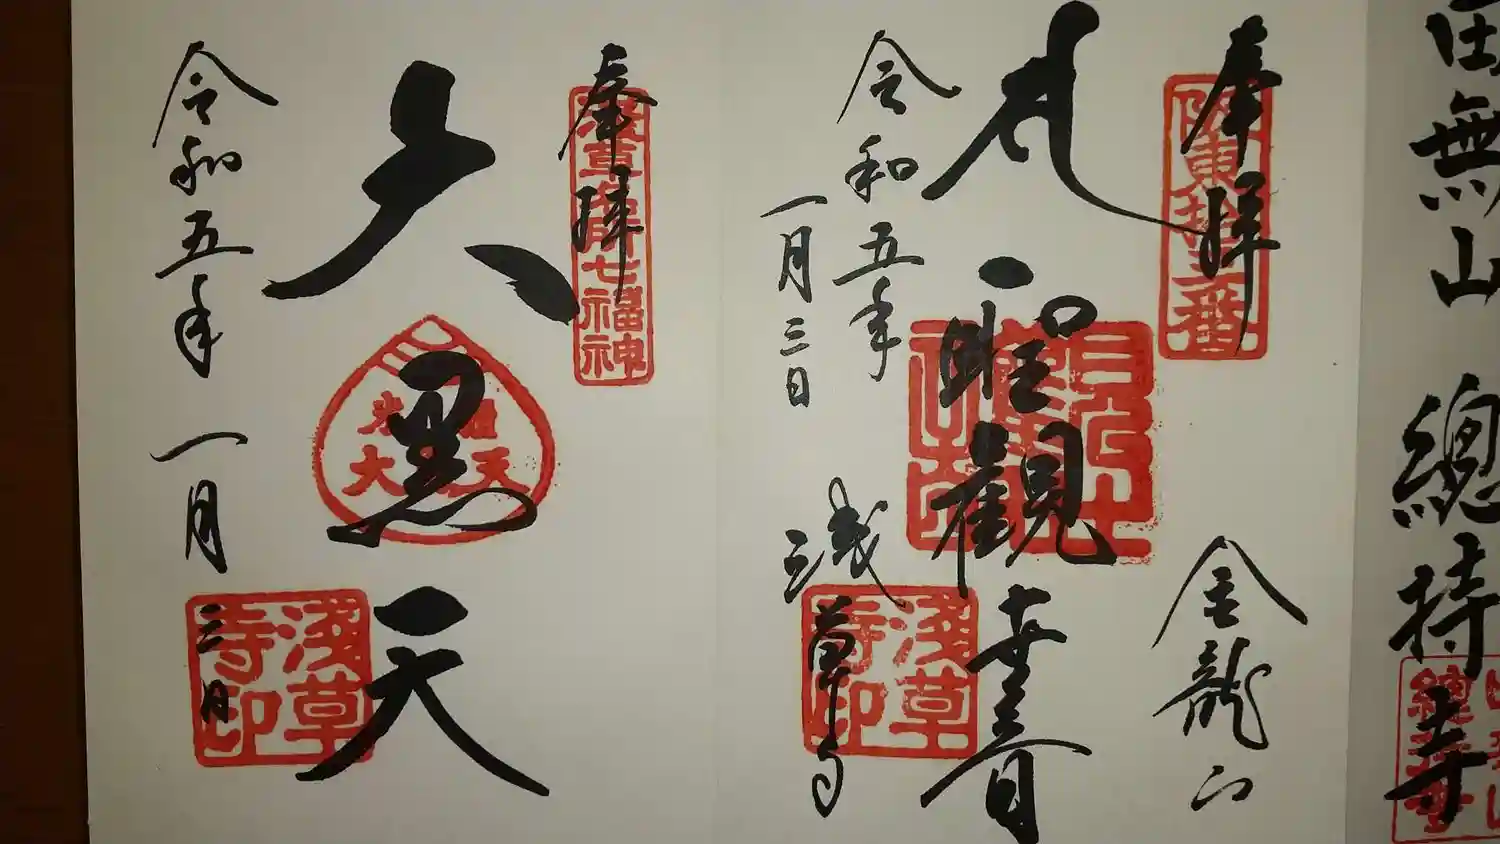 田無山
總持寺
奉拝
坂東拾三番
金龍山
聖観世音
令和五年
一月三日
浅草寺
浅草寺印
奉拝
浅草名所七福神
大黒天
令和五年一月三日
浅草寺印